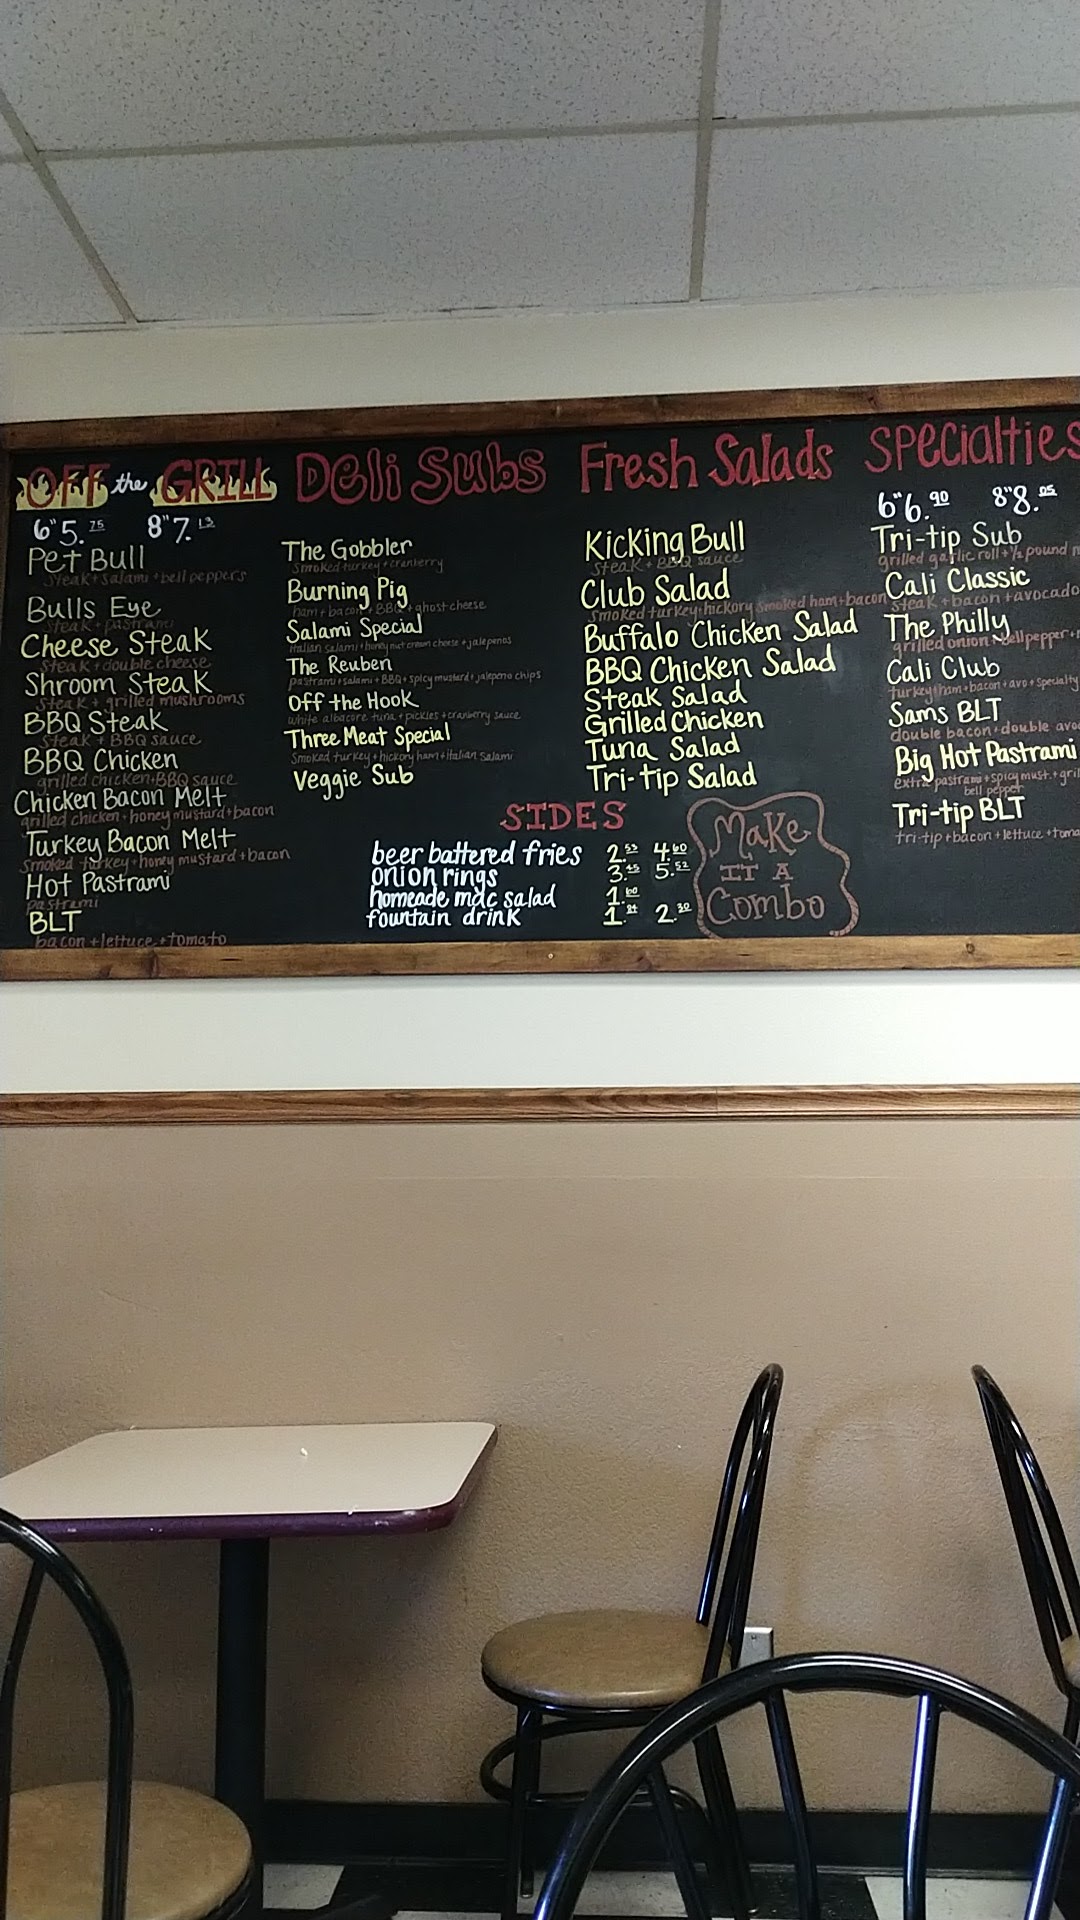 OFF the GRILL
6" 5.75 8" 7.13
Pet Bull
Steak + Salami + bell peppers
Bulls Eye
Steak + pastrami
Cheese Steak
Steak + double cheese
Shroom Steak
Steak + grilled mushrooms
BBQ Steak
Steak + BBQ sauce
BBQ Chicken
grilled chicken + BBQ sauce
Chicken Bacon Melt
grilled chicken + honey mustard + bacon
Turkey Bacon Melt
Smoked turkey + honey mustard + bacon
Hot Pastrami
pastrami
BLT
bacon + lettuce + tomato
Deli Subs
The Gobbler
Smoked turkey + cranberry
Burning Pig
ham + bacon + BBQ + ghost cheese
Salami Special
italian salami + honey nut cream cheese + jalepenos
The Reuben
pastrami + salami + BBQ + spicy mustard + jalepeno chips
Off the Hook
white albacore tuna + pickles + cranberry sauce
Three Meat Special
Smoked turkey + hickory ham + italian Salami
Veggie Sub
Fresh Salads
Kicking Bull
Steak + BBQ sauce
Club Salad
Smoked turkey + hickory smoked ham + bacon
Buffalo Chicken Salad
BBQ Chicken Salad
Steak Salad
Grilled Chicken
Tuna Salad
Tri-tip Salad
Specialties
6" 6.90 8" 8.05
Tri-tip Sub
grilled garlic roll + ½ pound
Cali Classic
steak + bacon + avocado
The Philly
grilled onion + bell pepper +
Cali Club
turkey + ham + bacon + avo + specialty
Sams BLT
double bacon + double
Big Hot Pastrami
extra pastrami + spicy must. +
bell pepper
Tri-tip BLT
tri-tip + bacon + lettuce +
SIDES
beer battered fries 2.53 4.60
onion rings 3.45 5.52
homeade mac salad 1.60
fountain drink 1.84 2.30
Make
IT A
Combo